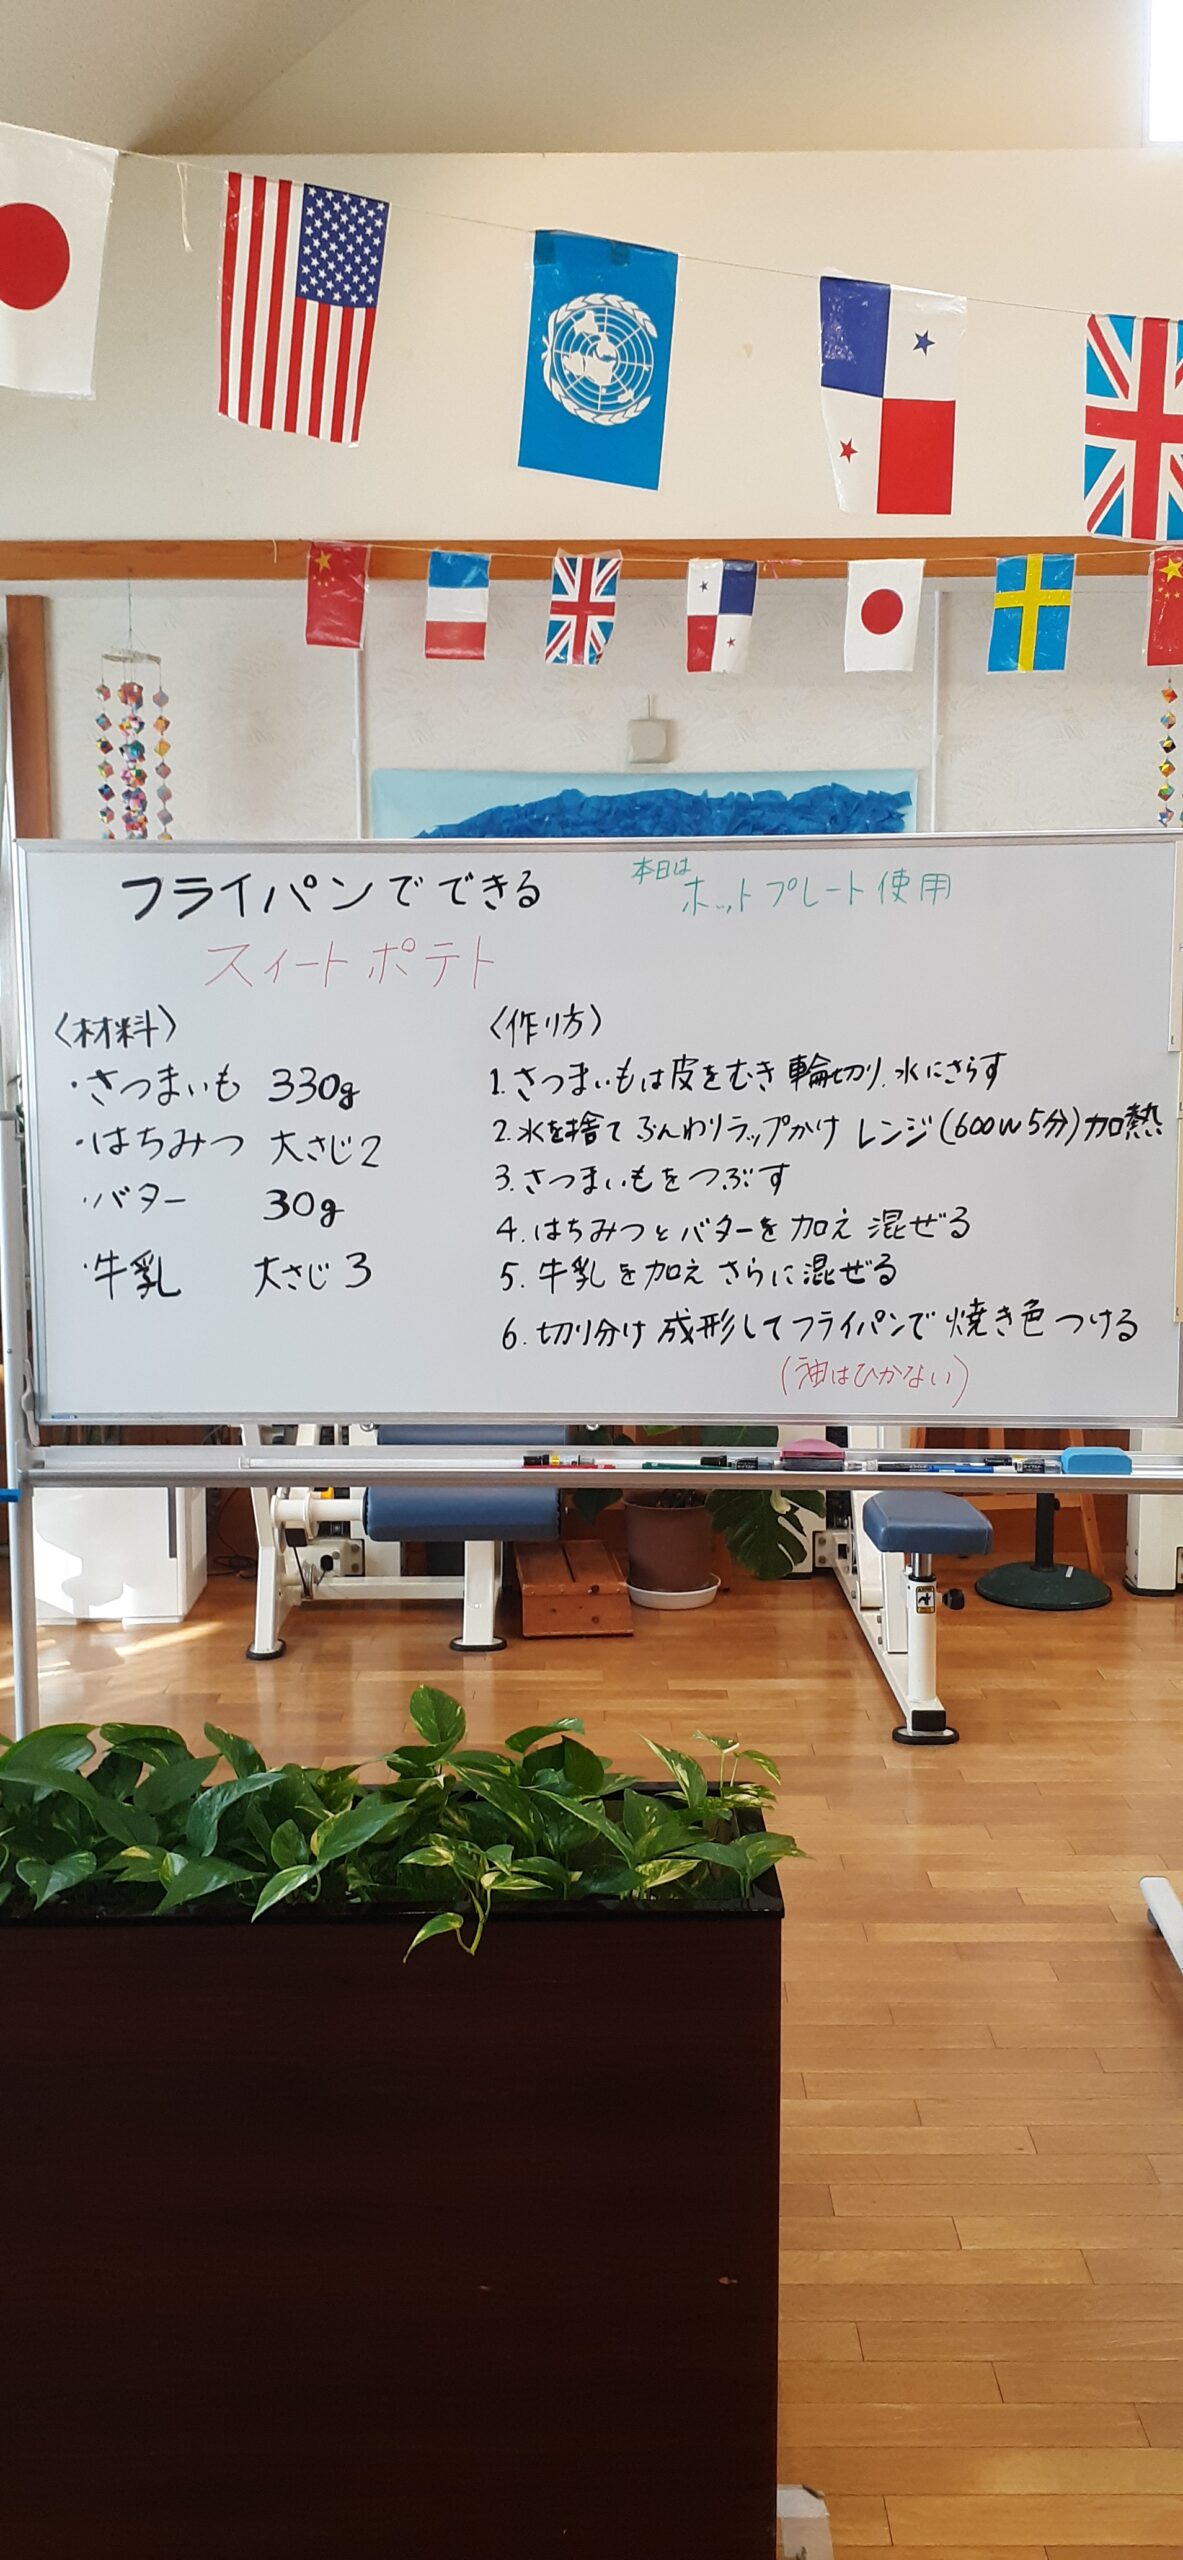 フライパンでできる
本日は
ホットプレート使用
スィートポテト
〈材料〉
・さつまいも 330g
・はちみつ 大さじ2
・バター 30g
・牛乳 大さじ3
〈作り方〉
1.さつまいもは皮をむき輪切り、水にさらす
2.水を捨てふんわりラップかけ レンジ(600W5分)加熱
3.さつまいもをつぶす
4.はちみつとバターを加え混ぜる
5.牛乳を加えさらに混ぜる
6.切り分け成形してフライパンで焼き色つける
(油はひかない)